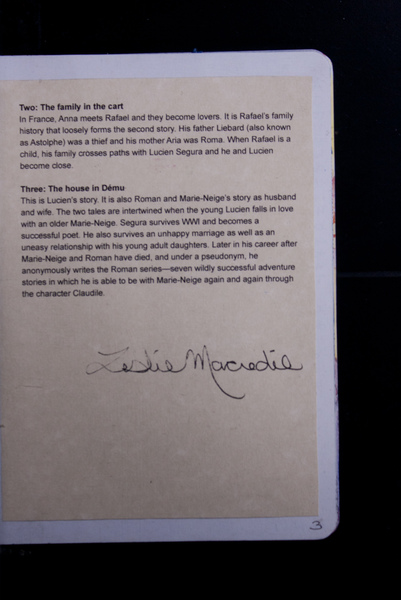 Two: The family in the cart
In France, Anna meets Rafael and they become lovers. It is Rafael's family
history that loosely forms the second story. His father Liebard (also known
as Astolphe) was a thief and his mother Aria was Roma. When Rafael is a
child, his family crosses paths with Lucien Segura and he and Lucien
become close.
Three: The house in Dému
This is Lucien's story. It is also Roman and Marie-Neige's story as husband
and wife. The two tales are intertwined when the young Lucien falls in love
with an older Marie-Neige. Segura survives WWI and becomes a
successful poet. He also survives an unhappy marriage as well as an
uneasy relationship with his young adult daughters. Later in his career after
Marie-Neige and Roman have died, and under a pseudonym, he
anonymously writes the Roman series—seven wildly successful adventure
stories in which he is able to be with Marie-Neige again and again through
the character Claudile.
Leslie Macredie
3